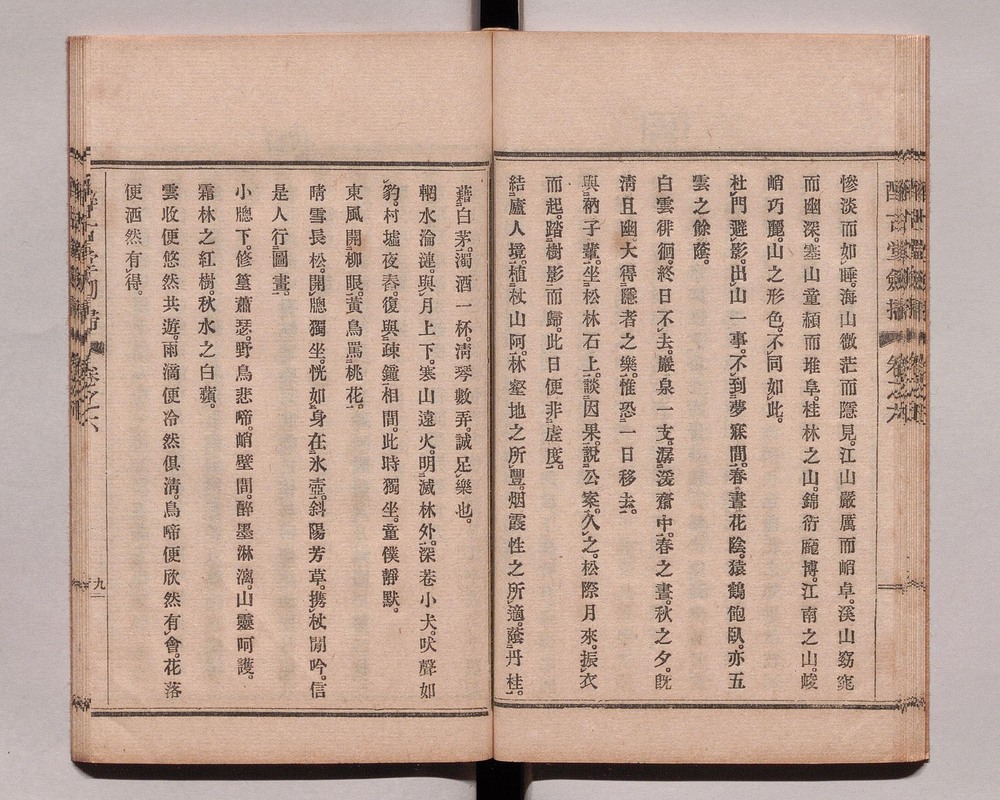 慘淡而如睡。海山微茫而隱見。江山嚴厲而峭卓。溪山窈窕
而幽深。塞山童赬而堆阜。桂林之山。錦衒龐博。江南之山。峻
峭巧麗。山之形色。不同如此。
杜門避影。出山一事。不到夢寐間。春晝花陰。猿鶴飽臥。亦五
雲之餘蔭。
白雲徘徊。終日不去。巖泉一支。潺湲齋中。春之晝。秋之夕。既
清且幽。大得隱者之樂。惟恐一日移去。
與衲子輩。坐松林石上。談因果。說公案。久之。松際月來。振衣
而起。踏樹影而歸。此日便非虛度。
結廬人境。植杖山阿。林壑地之所豐。烟霞性之所適。蔭丹桂。
藉白茅。濁酒一杯。清琴數弄。誠足樂也。
輞水淪漣。與月上下。寒山遠火。明滅林外。深巷小犬。吠聲如
豹。村墟夜舂。復與疎鐘相間。此時獨坐。童僕靜默。
東風開柳眼。黃鳥罵桃花。
晴雪長松。開牕獨坐。恍如身在氷壺。斜陽芳草。携杖閒吟。信
是人行圖畫。
小牕下。修篁蕭瑟。野鳥悲啼。峭壁間。醉墨淋漓。山靈呵護。
霜林之紅樹。秋水之白蘋。
雲收便悠然共遊。雨滴便冷然俱清。鳥啼便欣然有會。花落
便洒然有得。
卷之六
九